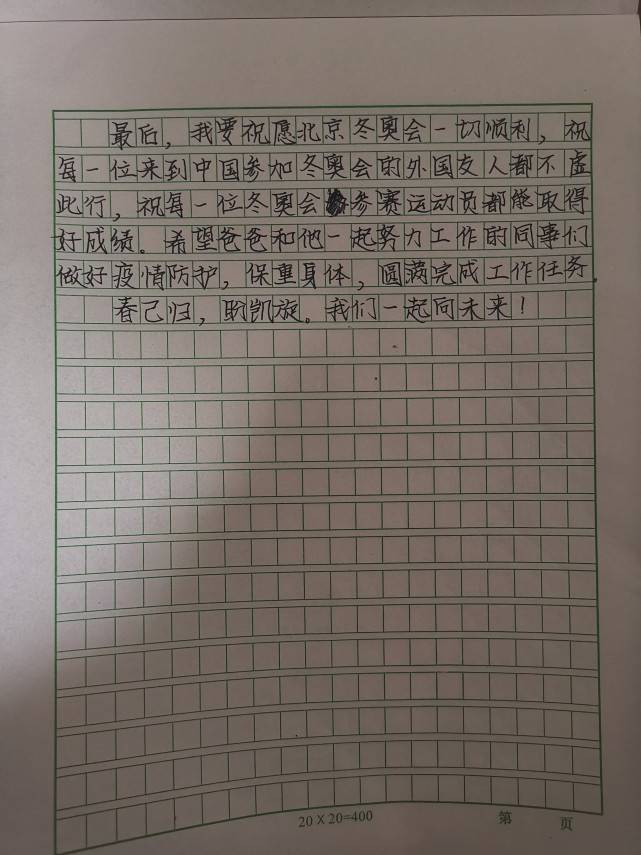 最后，我要祝愿北京冬奥会一切顺利，祝
每一位来到中国参加冬奥会的外国友人都不虚
此行，祝每一位冬奥会参赛运动员都能取得
好成绩。希望爸爸和他一起努力工作的同事们
做好疫情防护，保重身体，圆满完成工作任务。
春已归，盼凯旋。我们一起向未来！
20×20=400
第 页